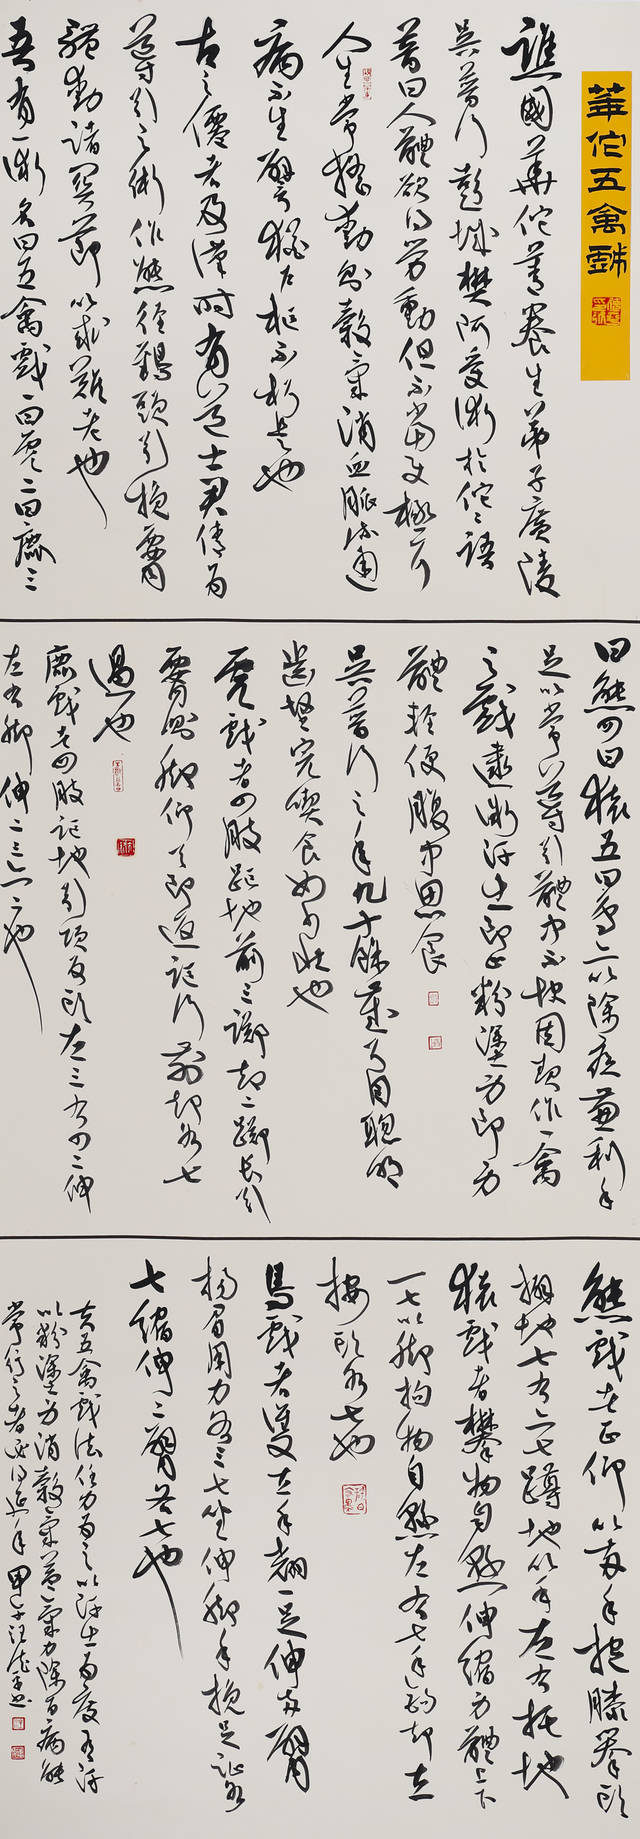 華佗五禽戲
譙國華佗善養生弟子廣陵
吳普彭城樊阿受術於佗佗語
普曰人體欲得勞動但不當使極耳
人生常搖動則穀氣消血脈流通
病不生譬猶戶樞不朽是也
古之僊者及漢時有道士君倩為
導引之術作熊經鴟頭引挽腰
體動諸關節以求難老也
吾有一術名曰五禽戲一曰虎二曰鹿三
曰熊四曰猿五曰鳥亦以除疾兼利手
足以常導引體中不快因起作一禽
之戲遣微汗出即止粉塗身即身
體輕便腹中思食
吳普行之年九十餘歲耳目聰明
齒堅完喫食如少壯也
虎戲者四肢距地前三擲却二擲長引
腰側脚仰天即返距行前却各七
過也
鹿戲者四肢距地引項反顧左三右四二伸
左右脚伸二三亦二也
熊戲者正仰以兩手抱膝舉頭
擗地七右亦七蹲地以手左右托地
猿戲者攀物自懸伸縮身體上下
一七以脚拘物自懸左右七手鉤却立
按頭各七也
鳥戲者雙立手翹一足伸兩臂
揚眉用力各二七坐伸脚手挽足距各
七縮伸二臂各七也
夫五禽戲法任力為之以汗出為度有汗
以粉塗身消穀氣益氣力除百病能
常行之者必得延年甲子